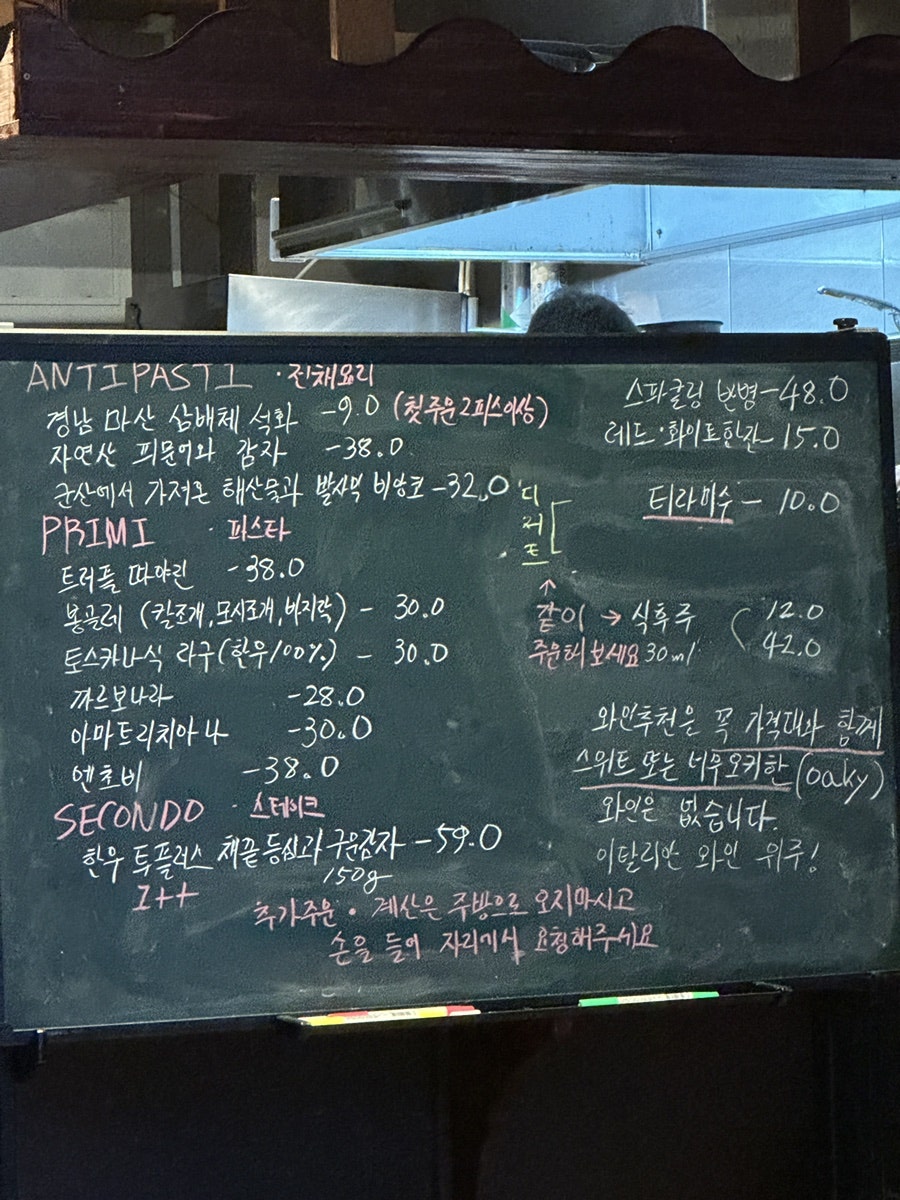 ANTIPASTI · 전채요리
경남 마산 삼배체 석화 -9.0 (첫주문 2피스이상)
자연산 피문어와 감자 -38.0
군산에서 가져온 해산물과 발사믹 비앙코 -32.0
PRIMI · 파스타
트러플 따야린 -38.0
봉골레 (칼조개, 모시조개, 바지락) - 30.0
토스카나식 라구 (한우100%) - 30.0
까르보나라 -28.0
아마트리치아나 -30.0
엔초비 -38.0
SECONDO · 스테이크
한우 투플러스 채끝등심과 구운감자 -59.0
1++ 150g
추가주문 · 계산은 주방으로 오지마시고
손을 들어 자리에서 요청해주세요
스파클링 반병 -48.0
레드·화이트 한잔 15.0
디저트
티라미수 - 10.0
↑
같이 → 식후주 12.0
주문해보세요 30ml 42.0
와인추천은 꼭 가격대와 함께
스위트 또는 너무오키한 (oaky)
와인은 없습니다.
이탈리안 와인 위주!